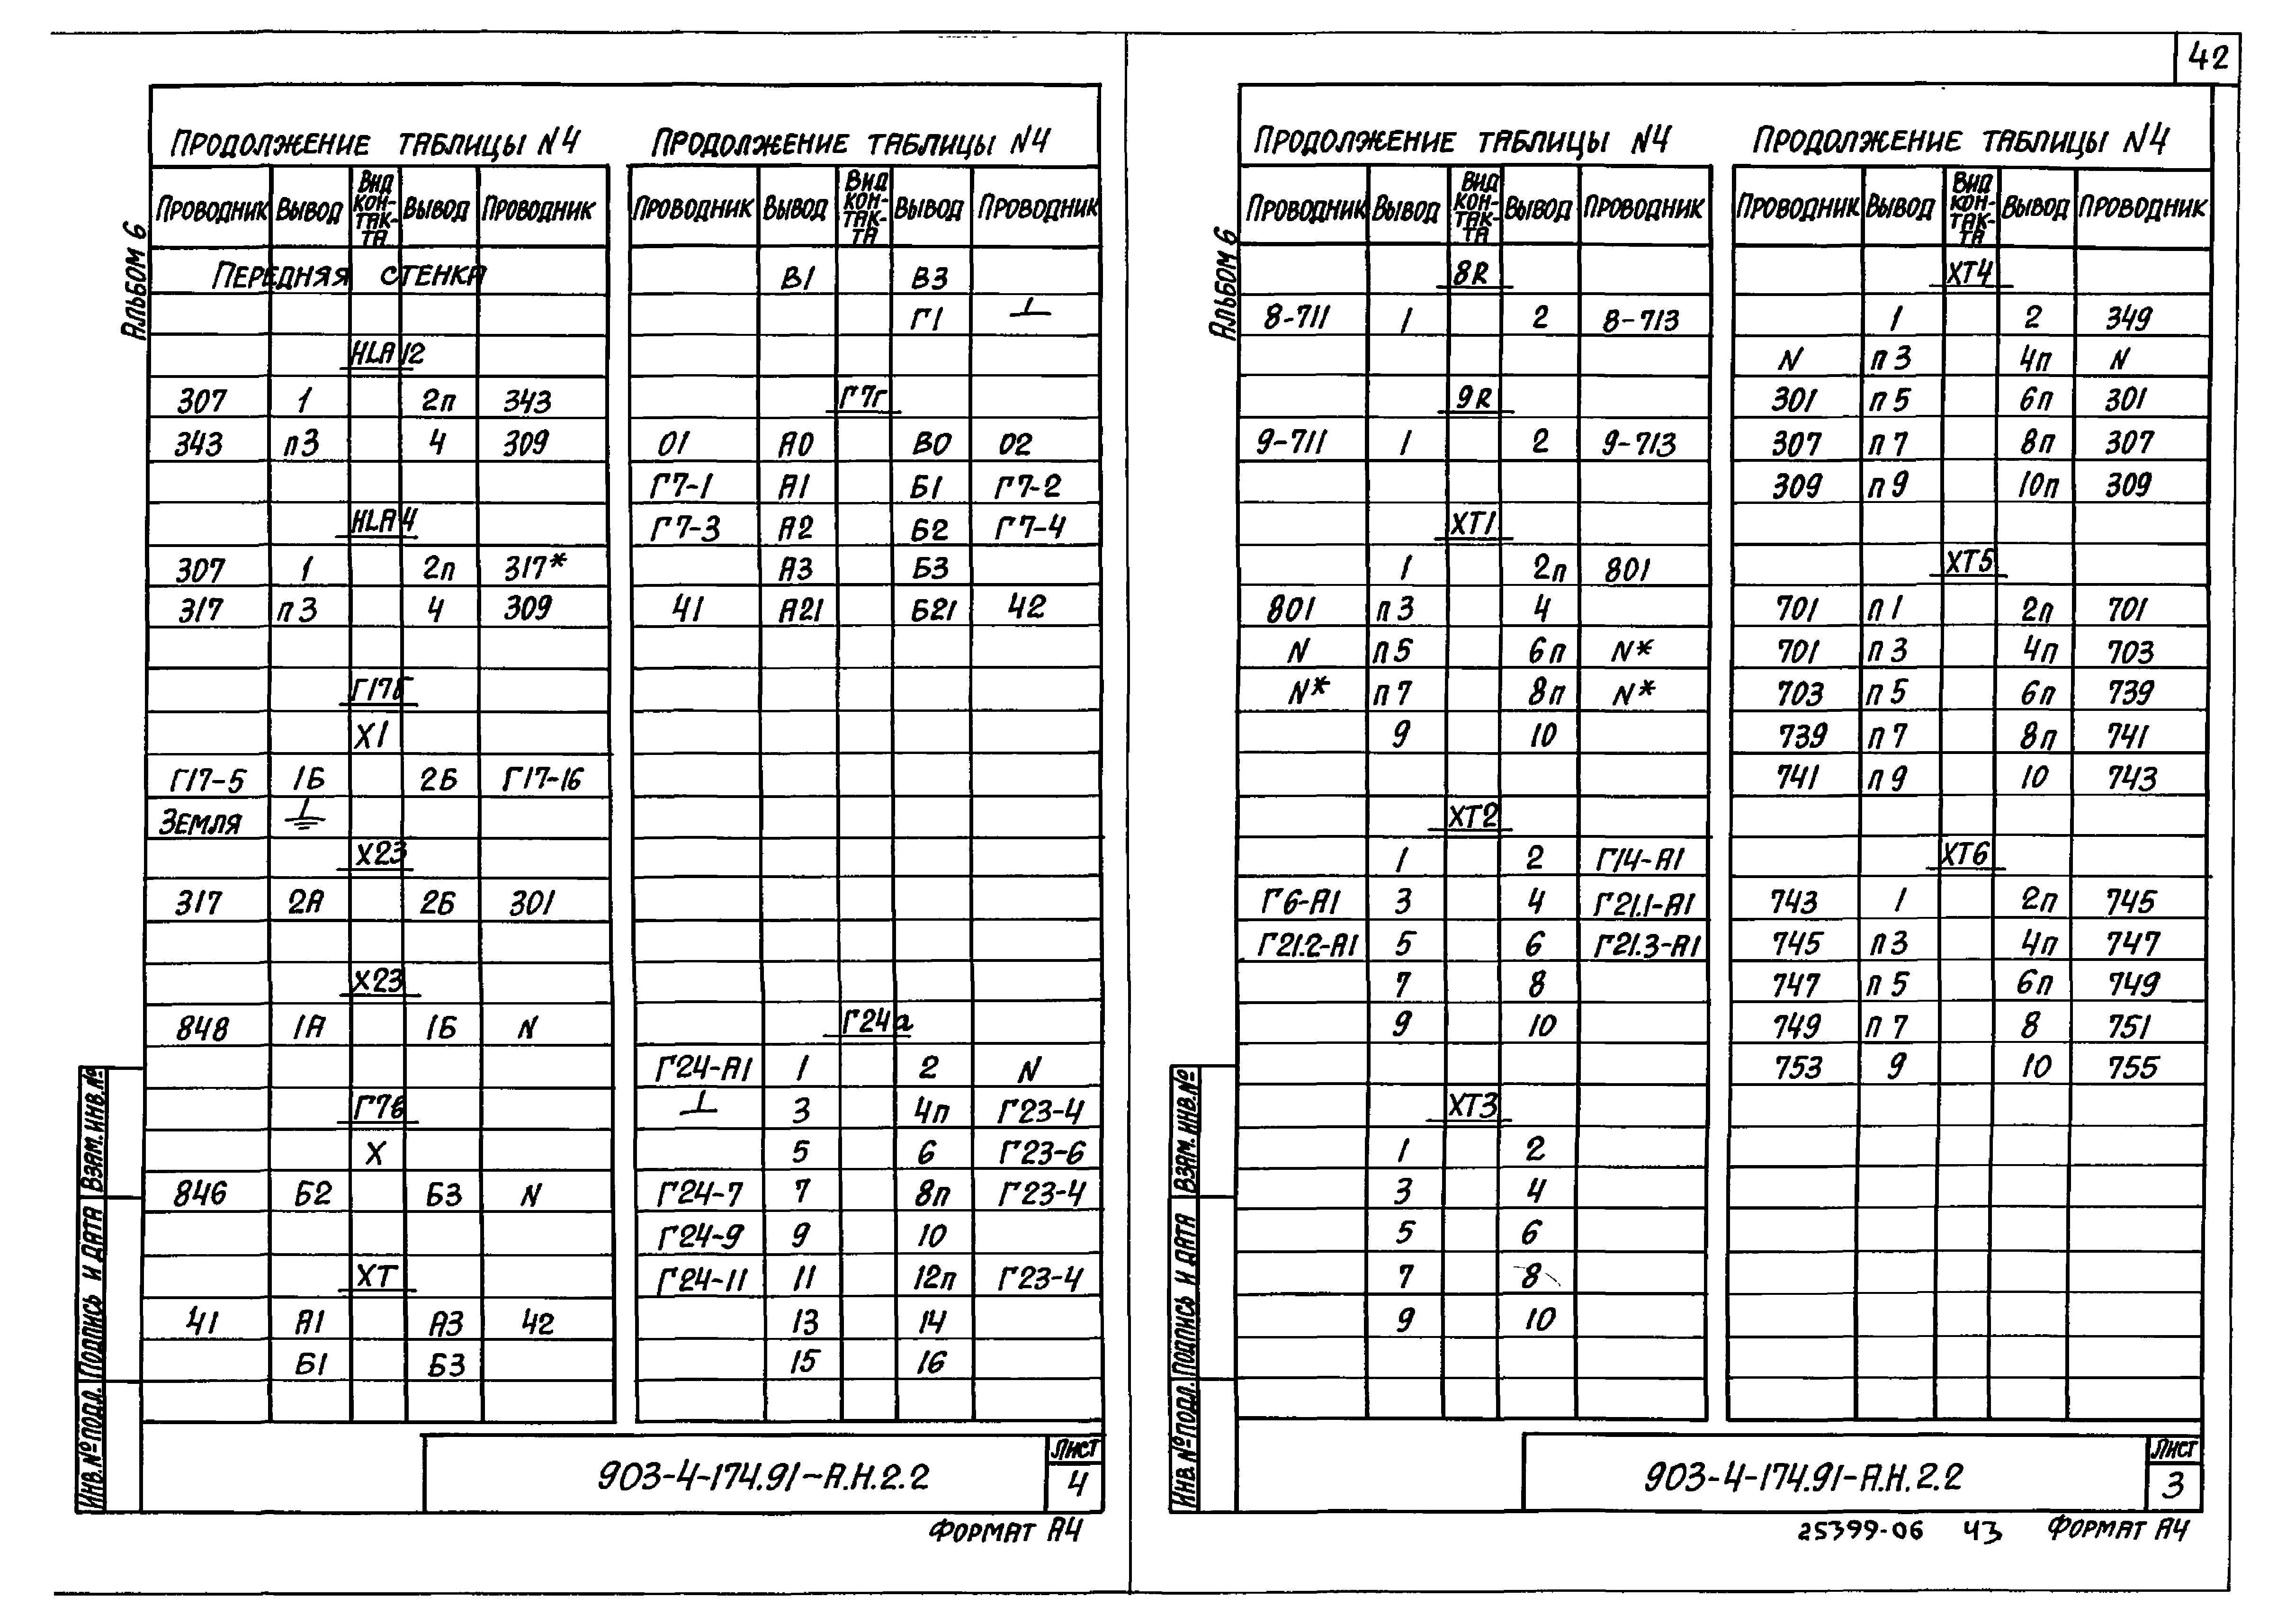 42
Альбом 6
Продолжение таблицы N4
Проводник Вывод Вид контакта Вывод Проводник
Передняя стенка
HLA12
307 1 2п 343
343 п3 4 309
HLA4
307 1 2п 317*
317 п3 4 309
Г17Г
X1
Г17-5 1Б 2Б Г17-16
Земля ⏚
X23
317 2А 2Б 301
X23
848 1А 1Б N
Г7в
X
846 Б2 Б3 N
XT
41 А1 А3 42
Б1 Б3
Продолжение таблицы N4
Проводник Вывод Вид контакта Вывод Проводник
В1 В3
Г1 ⊥
Г7г
01 А0 В0 02
Г7-1 А1 Б1 Г7-2
Г7-3 А2 Б2 Г7-4
А3 Б3
41 А21 Б21 42
Г24а
Г24-А1 1 2 N
⊥ 3 4п Г23-4
5 6 Г23-6
Г24-7 7 8п Г23-4
Г24-9 9 10
Г24-11 11 12п Г23-4
13 14
15 16
Инв.№подл. Подпись и дата Взам.инв.№
903-4-174.91-А.Н.2.2
Лист
4
Формат А4
Альбом 6
Продолжение таблицы N4
Проводник Вывод Вид контакта Вывод Проводник
8R
8-711 1 2 8-713
9R
9-711 1 2 9-713
XT1
1 2п 801
801 п3 4
N п5 6п N*
N* п7 8п N*
9 10
XT2
1 2 Г14-А1
Г6-А1 3 4 Г21.1-А1
Г21.2-А1 5 6 Г21.3-А1
7 8
9 10
XT3
1 2
3 4
5 6
7 8
9 10
Продолжение таблицы N4
Проводник Вывод Вид контакта Вывод Проводник
XT4
1 2 349
N п3 4п N
301 п5 6п 301
307 п7 8п 307
309 п9 10п 309
XT5
701 п1 2п 701
701 п3 4п 703
703 п5 6п 739
739 п7 8п 741
741 п9 10 743
XT6
743 1 2п 745
745 п3 4п 747
747 п5 6п 749
749 п7 8 751
753 9 10 755
Инв.№подл. Подпись и дата Взам.инв.№
903-4-174.91-А.Н.2.2
Лист
3
25399-06 43 Формат А4